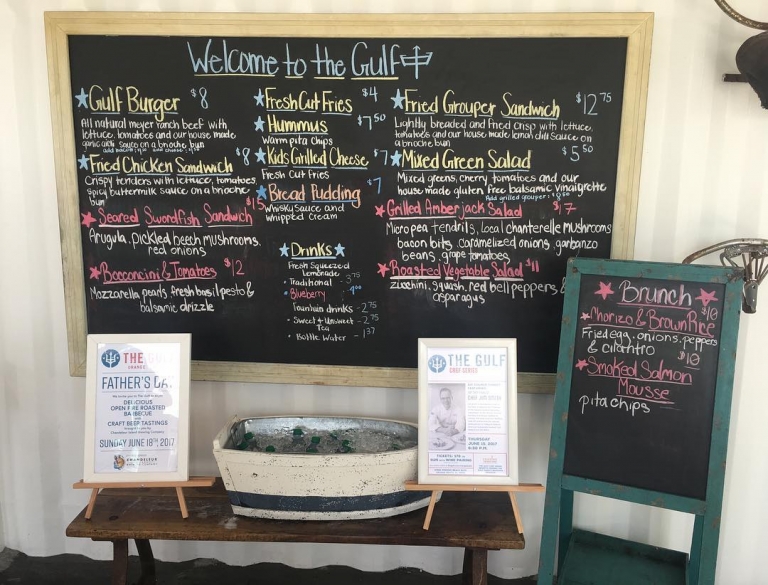 Welcome to the Gulf
Gulf Burger $8
All natural meyer ranch beef with
lettuce, tomatoes and our house made
garlic aioli sauce on a brioche bun
Fried Chicken Sandwich $8
Crispy tenders with lettuce, tomatoes,
spicy buttermilk sauce on a brioche
bun
Seared Swordfish Sandwich $15
Arugula, pickled beech mushrooms,
red onions
Bocconcini & Tomatoes $12
Mozzarella pearls, fresh basil pesto &
balsamic drizzle
Fresh Cut Fries $4
Hummus $7.50
Warm pita chips
Kids Grilled Cheese $7
Fresh Cut Fries
Bread Pudding $7
Whisky Sauce and
Whipped Cream
Drinks
Fresh Squeezed
Lemonade
• Traditional 3.75
• Blueberry
Fountain drinks - 2.75
• Sweet & Unsweet - 2.75
Tea
• Bottle Water -
Fried Grouper Sandwich $12.75
Lightly breaded and fried crisp with lettuce,
tomatoes and our house made lemon dill sauce on
a brioche bun
Mixed Green Salad $5.50
Mixed greens, cherry tomatoes and our
house made gluten free balsamic vinaigrette
Add grilled grouper:
Grilled Amberjack Salad $17
Micro pea tendrils, local chanterelle mushrooms
bacon bits, caramelized onions, garbanzo
beans, grape tomatoes
Roasted Vegetable Salad $11
zucchini, squash, red bell peppers &
asparagus
Brunch
Chorizo & Brown Rice $10
Fried egg, onions, peppers
& cilantro
Smoked Salmon $10
Mousse
pita chips
THE GULF
ORANGE
FATHER'S DAY
DELICIOUS
OPEN FIRE ROASTED
BARBECUE
CRAFT BEER TASTINGS
SUNDAY JUNE 18TH 2017
CHANDELEUR
THE GULF
THURSDAY